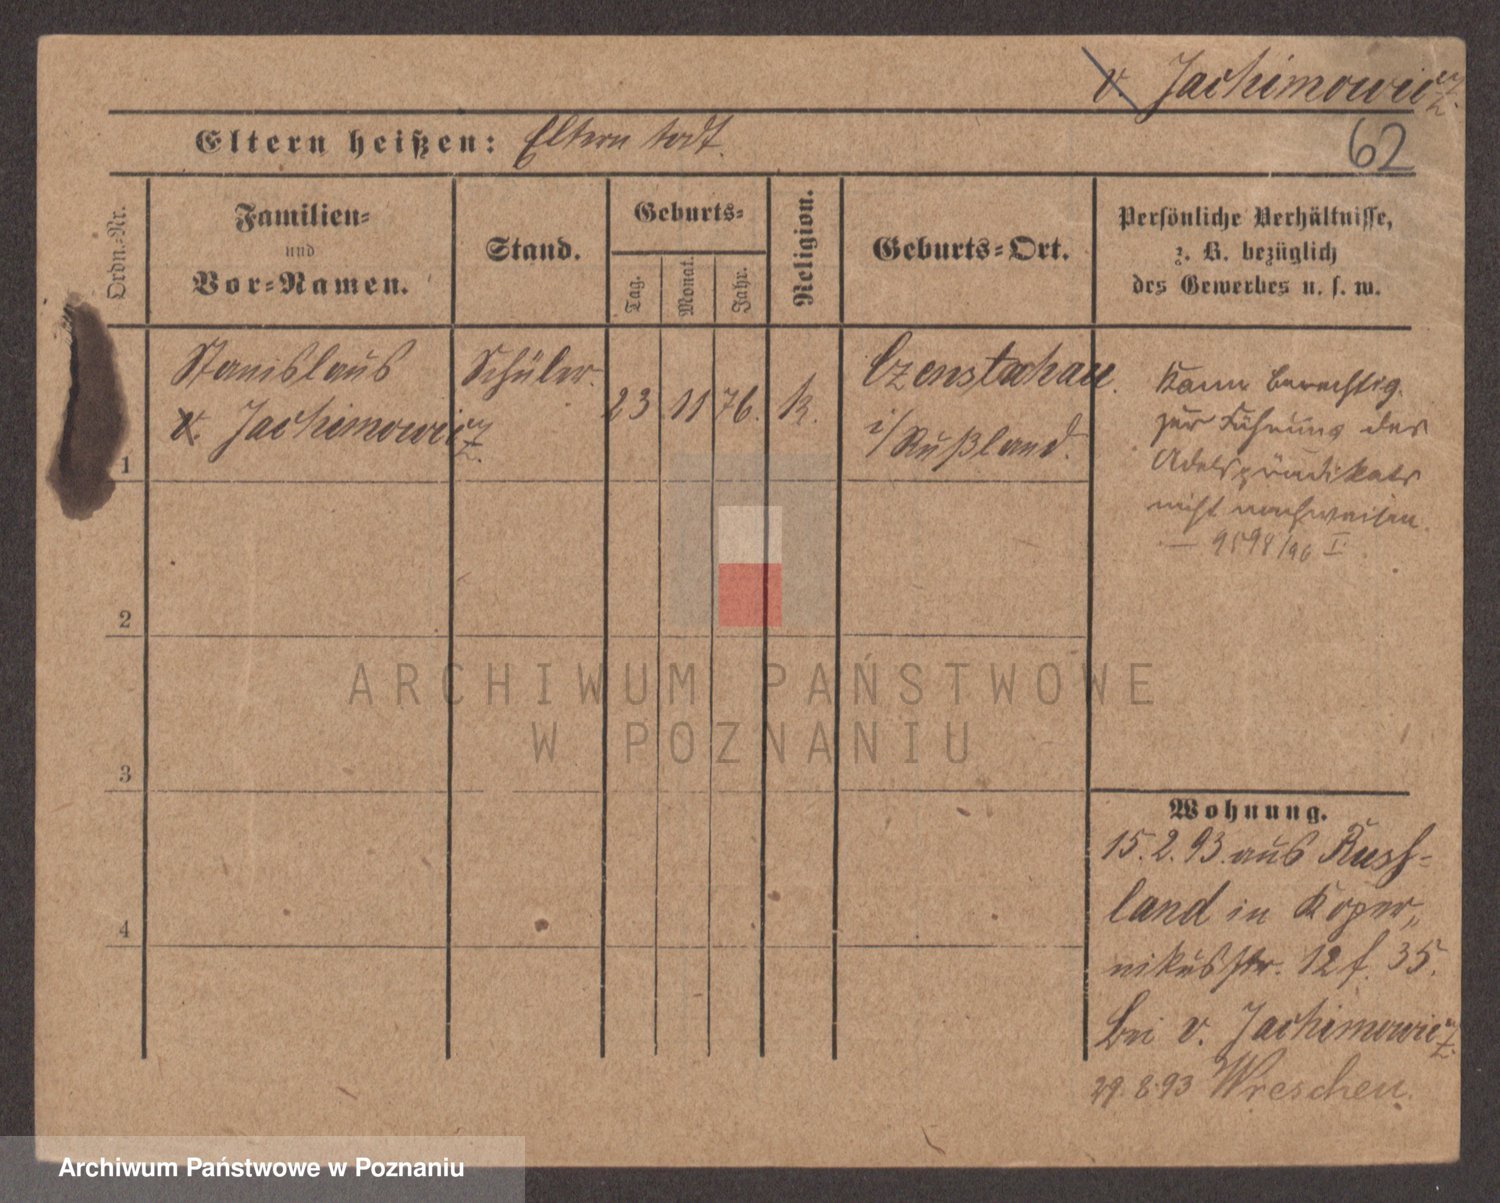 v. Jachimowicz.
62
Eltern heißen: Eltern todt.
Ordn.=Nr.
Familien=
und
Vor=Namen.
Stand.
Geburts=
Tag.
Monat.
Jahr.
Religion.
Geburts=Ort.
Persönliche Verhältnisse,
z. B. bezüglich
des Gewerbes u. s. w.
1
Stanislaus
v. Jachimowicz.
Schüler.
23
11
76.
k.
Czenstochau.
i/Rußland.
Kann Berechtig.
zur Führung des
Adelsprädikats
nicht nachweisen.
— 9598/96 I.
2
3
4
Wohnung.
15.2.93. aus Russ=
land in Koper„
nikusstr. 12 f. 35.
bei v. Jachimowicz.
29.8.93 Wreschen.
ARCHIWUM PAŃSTWOWE
W POZNANIU
Archiwum Państwowe w Poznaniu